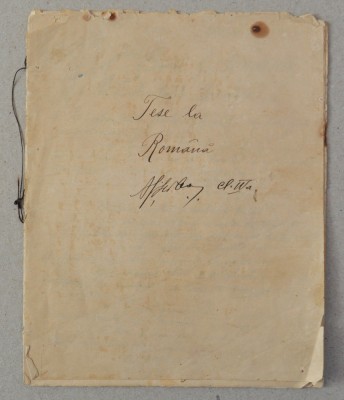 Tese la
Română
cl. IV a